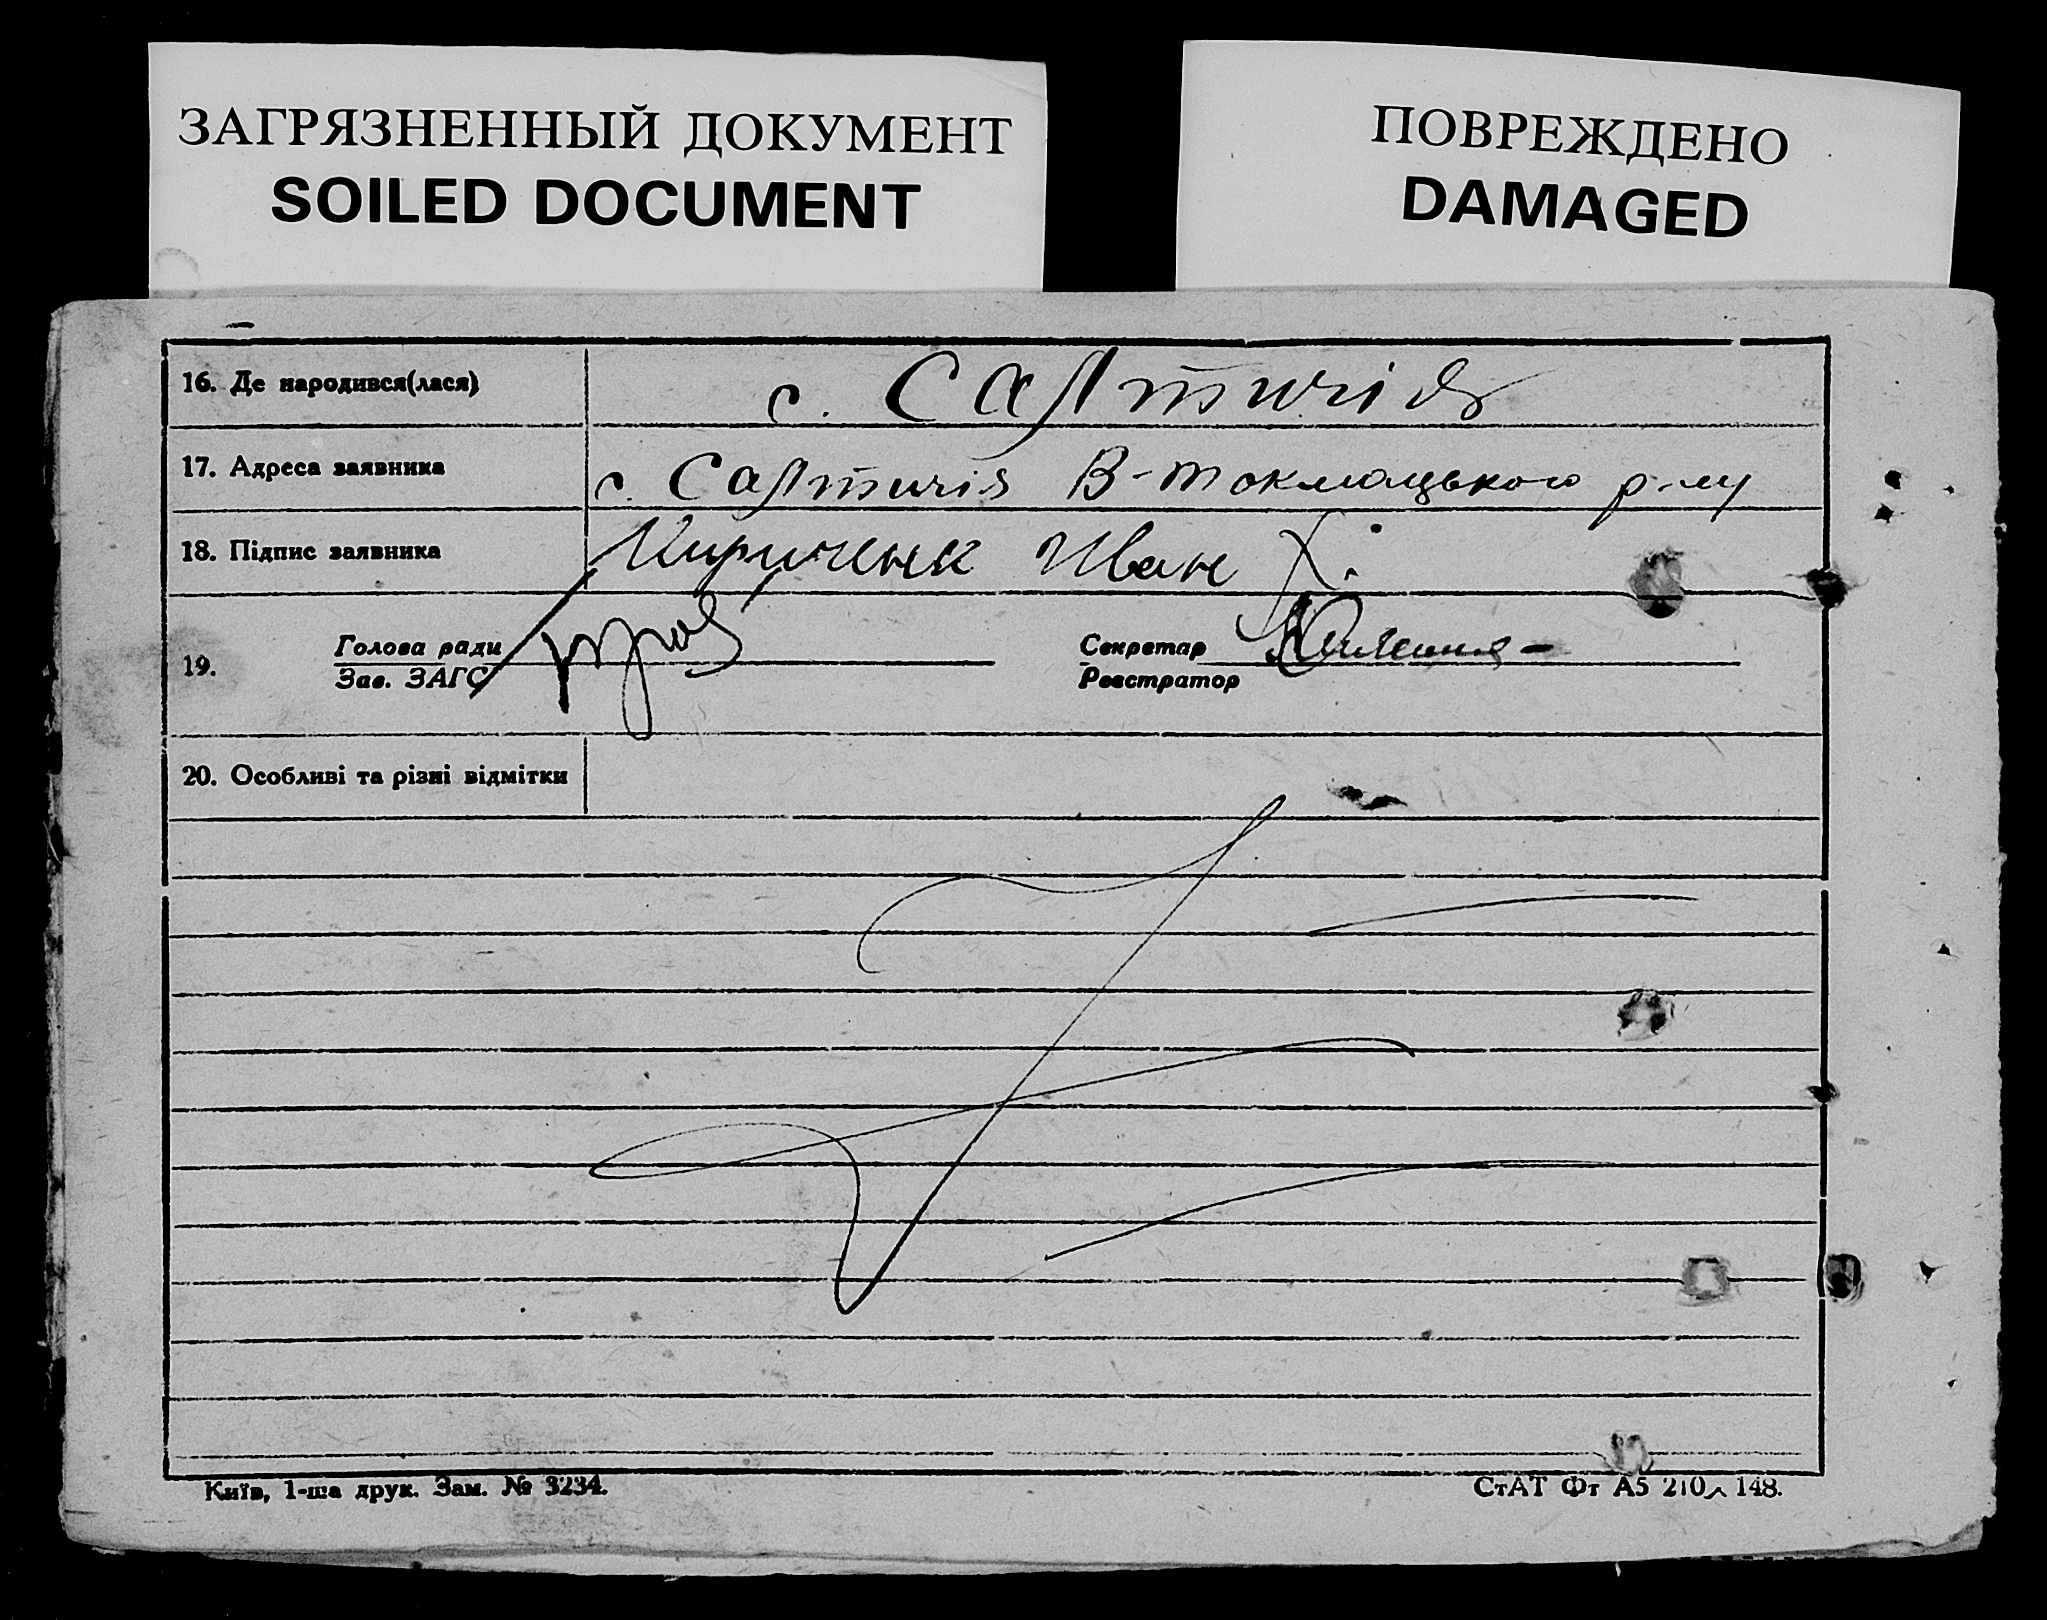 ЗАГРЯЗНЕННЫЙ ДОКУМЕНТ
SOILED DOCUMENT
ПОВРЕЖДЕНО
DAMAGED
16. Де народився(лася) с. Салтичія
17. Адреса заявника с. Салтичія В-Токмацького р-ну
18. Підпис заявника Кириченк Иван Х.
19. Голова ради
Зав. ЗАГС
Секретар
Реєстратор
20. Особливі та різні відмітки
Київ, 1-ша друк. Зам. № 3234.
СтАТ Фт А5 210 148.